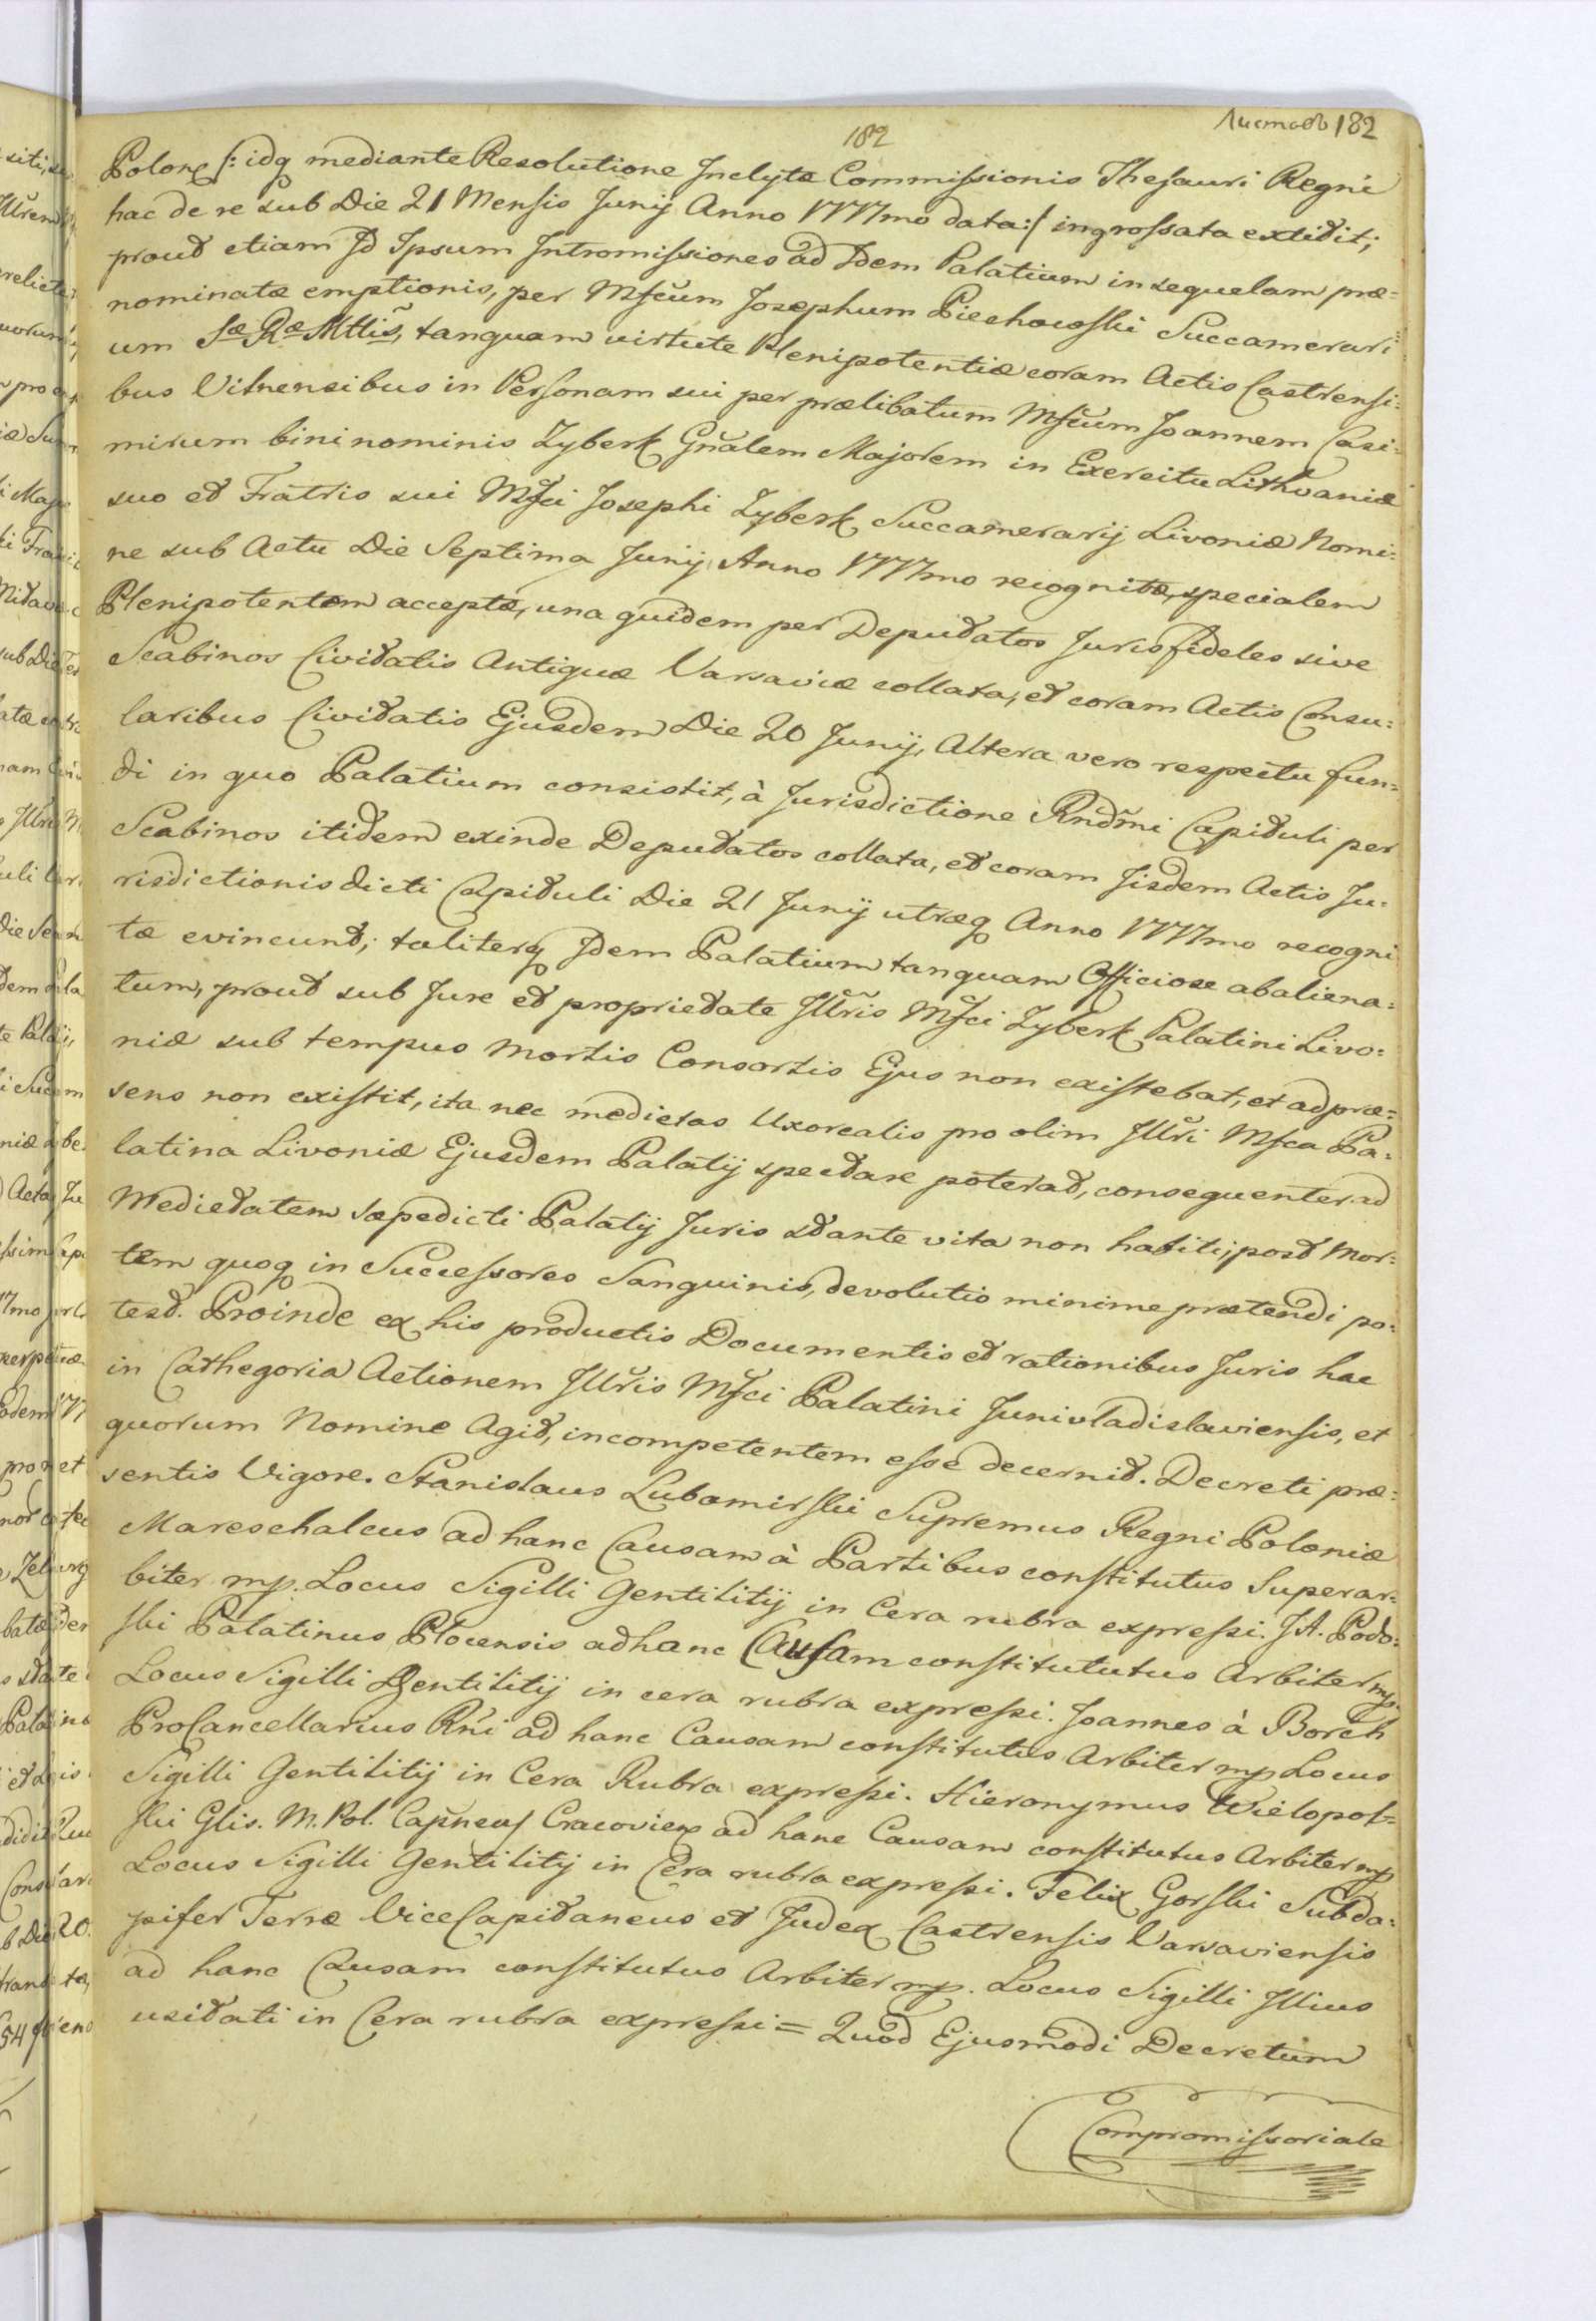 Листовъ 182
182
Polonę /: idq mediante Resolutione Jnclytæ Commissionis Thesauri Regni
hac de re sub Die 21 Mensis Junij Anno 1777mo data :/ ingrossata extitit;
prout etiam Jd Ipsum Intromissiones ad Jdem Palatium in sequelam præ=
nominatæ emptionis, per Mfcum Josephum Piechowski Succamerari=
um Sæ Ræ Mttis, tanquam virtute Plenipotentiæ coram Actis Castrensi=
bus Vilnensibus in Personam sui per prælibatum Mfcum Joannem Casi=
mirum bini nominis Zyberk Gñalem Majorem in Exercitu Lithvaniæ
suo et Fratris sui Mfci Josephi Zyberk Succamerarij Livoniæ Nomi=
ne sub Actu Die Septima Junij Anno 1777mo recognitæ, specialem
Plenipotentem acceptæ, una quidem per Deputatos Jurisfideles sive
Scabinos Civitatis Antiquæ Varsaviæ collata, et coram Actis Consu=
laribus Civitatis Ejusdem Die 20 Junij, Altera vero respectu fun=
di in quo Palatium consistit, à Jurisdictione Rndmi Capituli per
Scabinos itidem exinde Deputatos collata, et coram Jisdem Actis Ju=
risdictionis dicti Capituli Die 21 Junij utræq Anno 1777mo recogni
tæ evincunt; taliterq Jdem Palatium tanquam Officiose abaliena=
tum, prout sub Jure et proprietate Jllris Mfci Zyberk Palatini Livo=
niæ sub tempus mortis Consortis Ejus non existebat, et ad præ=
sens non existit, ita nec medietas Uxorealis pro olim Jllri Mfca Pa=
latina Livoniæ Ejusdem Palatij spectare poterat, consequenter ad
Medietatem sæpedicti Palatij Juris stante vita non habiti, post Mor=
tem quoq in Successores Sanguinis, devolutio minime prætendi po=
test. Proinde ex his productis Documentis et rationibus Juris hac
in Cathegoria Actionem Jllris Mfci Palatini Junivladislaviensis, et
quorum Nomine Agit, incompetentem esse decernit. Decreti præ=
sentis Vigore. Stanislaus Lubomirski Supremus Regni Poloniæ
Mareschalcus ad hanc Causam à Partibus constitutus Superar=
biter mp. Locus Sigilli Gentilitij in Cera rubra expressi. J A. Podo=
ski Palatinus Plocensis ad hanc Causam constitututus Arbiter mp.
Locus Sigilli Gentilitij in cera rubra expressi. Joannes à Borch
ProCancellarius Rñi ad hanc Causam constitutus Arbiter mp Locus
Sigilli Gentilitij in Cera Rubra expressi. Hieronymus Wielopol=
ski Glis. M. Pol. Capneus Cracovien ad hanc Causam constitutus Arbiter mp
Locus Sigilli Gentilitij in Cera rubra expressi. Felix Gorski Subda=
pifer Terræ ViceCapitaneus et Judex Castrensis Varsaviensis
ad hanc Causam constitutus Arbiter mp. Locus Sigilli Jllius
usitati in Cera rubra expressi = Quod Ejusmodi Decretum
Compromissoriale